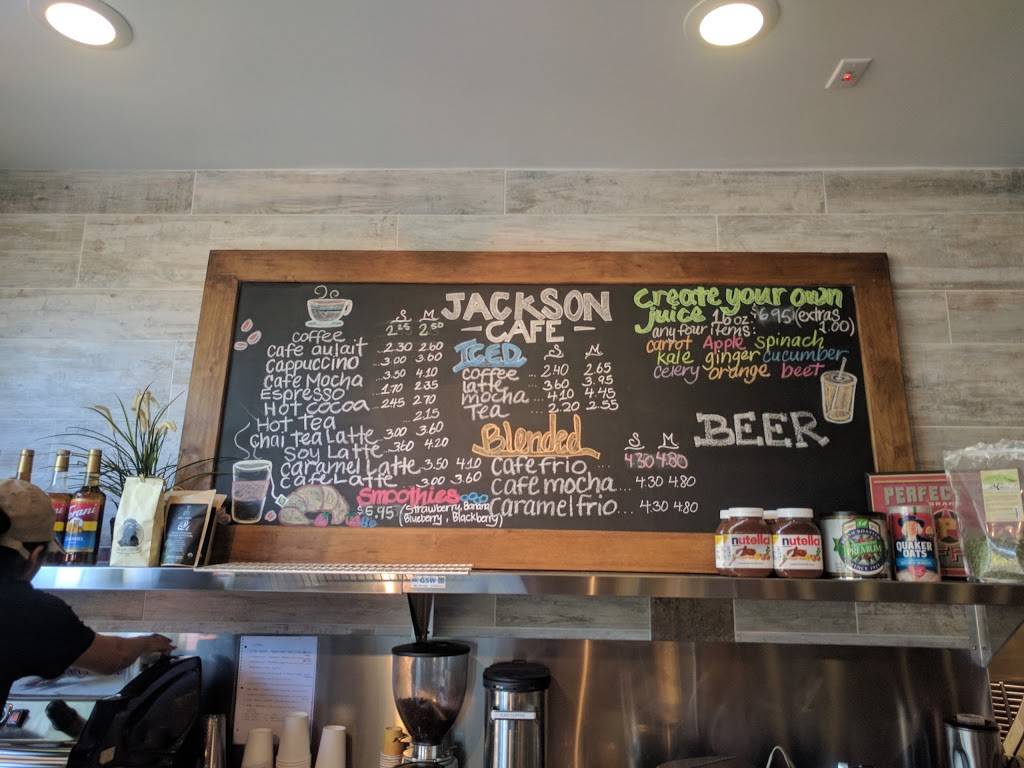 JACKSON
CAFE
S M
coffee 2.25 2.50
cafe aulait ... 2.30 2.60
cappuccino ... 3.00 3.60
Cafe Mocha ... 3.50 4.10
Espresso ... 1.70 2.35
Hot Cocoa ... 2.45 2.70
Hot Tea ... 2.15
Chai Tea Latte 3.00 3.60
Soy Latte ... 3.60 4.20
Caramel Latte 3.50 4.10
Cafe Latte ... 3.00 3.60
Smoothies
$5.95 (Strawberry, Banana
Blueberry, Blackberry)
ICED S M
coffee ... 2.40 2.65
latte ... 3.60 3.95
mocha ... 4.10 4.45
Tea ... 2.20 2.55
Blended S M
cafe frio ... 4.30 4.80
cafe mocha ... 4.30 4.80
caramel frio ... 4.30 4.80
Create your own
juice 16oz $6.95 (extras
any four items: 1.00)
carrot Apple spinach
kale ginger cucumber
celery orange beet
BEER
nutella
nutella
PREMIUM
QUAKER
OATS
PERFEC
GSW